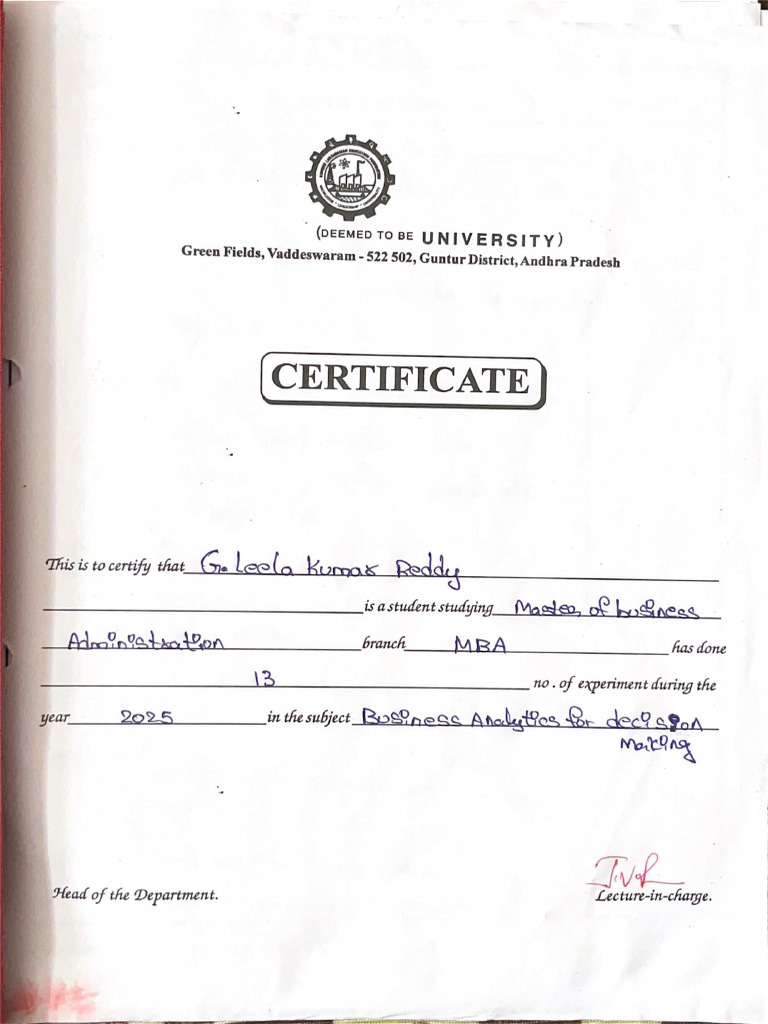 (DEEMED TO BE UNIVERSITY)
Green Fields, Vaddeswaram - 522 502, Guntur District, Andhra Pradesh
CERTIFICATE
This is to certify that G. Leela Kumar Reddy
is a student studying Master of business
Administration branch MBA has done
13 no. of experiment during the
year 2025 in the subject Business Analytics for decision
Making
Head of the Department.
Lecture-in-charge.